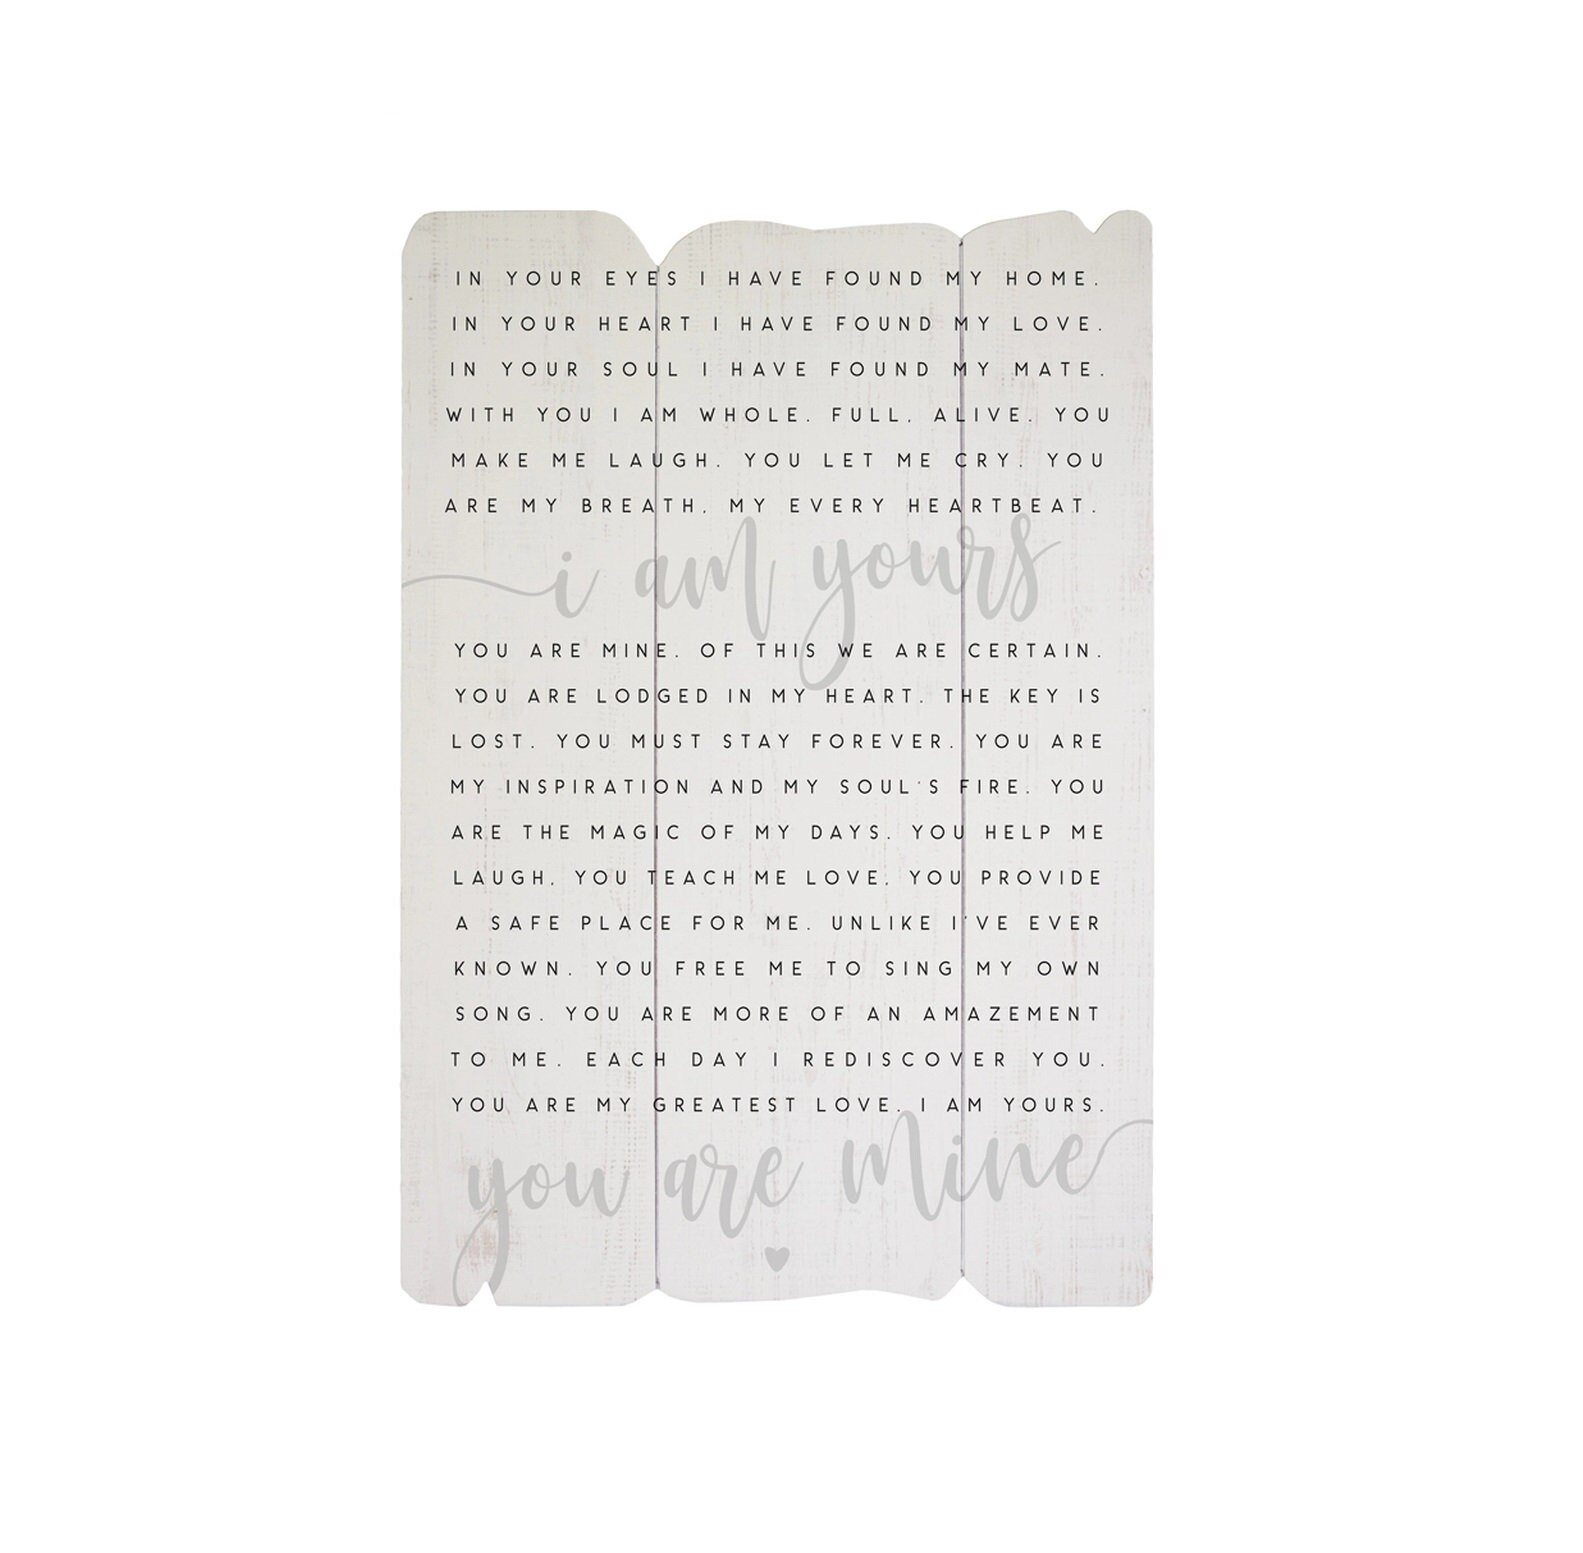 IN YOUR EYES I HAVE FOUND MY HOME.
IN YOUR HEART I HAVE FOUND MY LOVE.
IN YOUR SOUL I HAVE FOUND MY MATE.
WITH YOU I AM WHOLE. FULL. ALIVE. YOU
MAKE ME LAUGH. YOU LET ME CRY. YOU
ARE MY BREATH. MY EVERY HEARTBEAT.
i am yours
YOU ARE MINE. OF THIS WE ARE CERTAIN.
YOU ARE LODGED IN MY HEART. THE KEY IS
LOST. YOU MUST STAY FOREVER. YOU ARE
MY INSPIRATION AND MY SOUL'S FIRE. YOU
ARE THE MAGIC OF MY DAYS. YOU HELP ME
LAUGH. YOU TEACH ME LOVE. YOU PROVIDE
A SAFE PLACE FOR ME. UNLIKE I'VE EVER
KNOWN. YOU FREE ME TO SING MY OWN
SONG. YOU ARE MORE OF AN AMAZEMENT
TO ME. EACH DAY I REDISCOVER YOU.
YOU ARE MY GREATEST LOVE. I AM YOURS.
you are mine